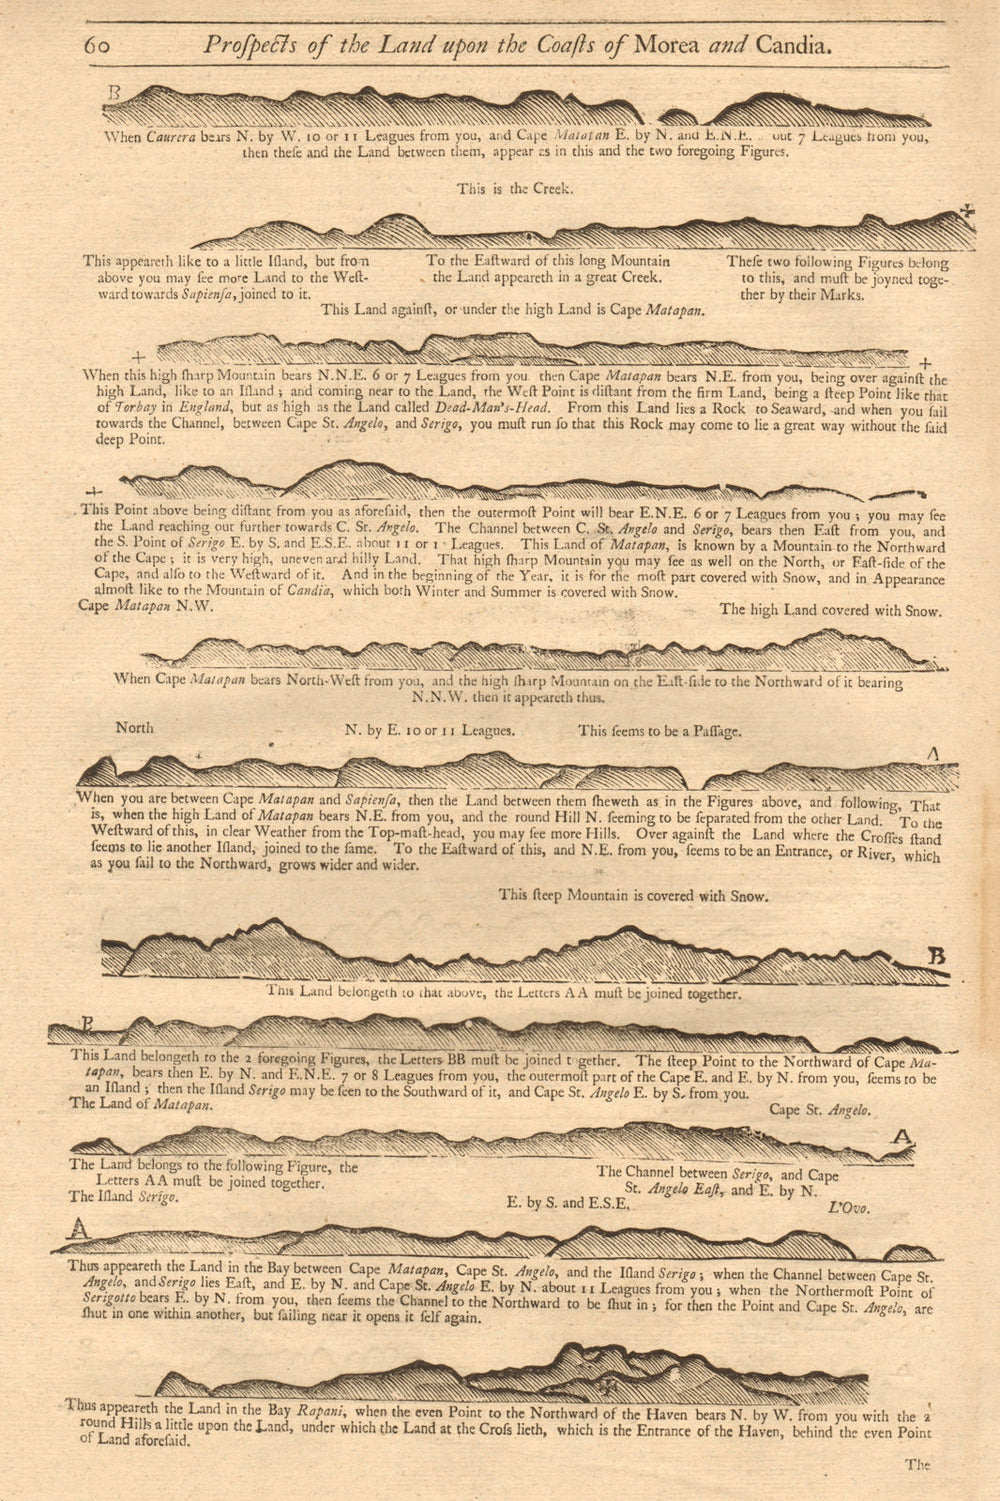 60 Proſpects of the Land upon the Coaſts of Morea and Candia.
B
When Caurera bears N. by W. 10 or 11 Leagues from you, and Cape Matapan E. by N. and E.N.E. out 7 Leagues from you,
then theſe and the Land between them, appear as in this and the two foregoing Figures.
This is the Creek.
This appeareth like to a little Iſland, but from
above you may ſee more Land to the Weſt-
ward towards Sapienſa, joined to it.
To the Eaſtward of this long Mountain
the Land appeareth in a great Creek.
Theſe two following Figures belong
to this, and muſt be joyned toge-
ther by their Marks.
This Land againſt, or under the high Land is Cape Matapan.
+ +
When this high ſharp Mountain bears N.N.E. 6 or 7 Leagues from you then Cape Matapan bears N.E. from you, being over againſt the
high Land, like to an Iſland; and coming near to the Land, the Weſt Point is diſtant from the firm Land, being a ſteep Point like that
of Torbay in England, but as high as the Land called Dead-Man's-Head. From this Land lies a Rock to Seaward, and when you ſail
towards the Channel, between Cape St. Angelo, and Serigo, you muſt run ſo that this Rock may come to lie a great way without the ſaid
deep Point.
+
This Point above being diſtant from you as aforeſaid, then the outermoſt Point will bear E.N.E. 6 or 7 Leagues from you; you may ſee
the Land reaching out further towards C. St. Angelo. The Channel between C. St. Angelo and Serigo, bears then Eaſt from you, and
the S. Point of Serigo E. by S. and E.S.E. about 11 or 1 Leagues. This Land of Matapan, is known by a Mountain to the Northward
of the Cape; it is very high, uneven and hilly Land. That high ſharp Mountain you may ſee as well on the North, or Eaſt-ſide of the
Cape, and alſo to the Weſtward of it. And in the beginning of the Year, it is for the moſt part covered with Snow, and in Appearance
almoſt like to the Mountain of Candia, which both Winter and Summer is covered with Snow.
Cape Matapan N.W. The high Land covered with Snow.
When Cape Matapan bears North-Weſt from you, and the high ſharp Mountain on the Eaſt-ſide to the Northward of it bearing
N.N.W. then it appeareth thus.
North N. by E. 10 or 11 Leagues. This ſeems to be a Paſſage.
+ A
When you are between Cape Matapan and Sapienſa, then the Land between them ſheweth as in the Figures above, and following, That
is, when the high Land of Matapan bears N.E. from you, and the round Hill N. ſeeming to be ſeparated from the other Land. To the
Weſtward of this, in clear Weather from the Top-maſt-head, you may ſee more Hills. Over againſt the Land where the Croſſes ſtand
ſeems to lie another Iſland, joined to the ſame. To the Eaſtward of this, and N.E. from you, ſeems to be an Entrance, or River, which
as you ſail to the Northward, grows wider and wider.
This ſteep Mountain is covered with Snow.
B
This Land belongeth to that above, the Letters AA muſt be joined together.
B
This Land belongeth to the 2 foregoing Figures, the Letters BB muſt be joined together. The ſteep Point to the Northward of Cape Ma-
tapan, bears then E. by N. and E.N.E. 7 or 8 Leagues from you, the outermoſt part of the Cape E. and E. by N. from you, ſeems to be
an Iſland; then the Iſland Serigo may be ſeen to the Southward of it, and Cape St. Angelo E. by S. from you.
The Land of Matapan. Cape St. Angelo.
A
The Land belongs to the following Figure, the
Letters AA muſt be joined together.
The Iſland Serigo.
The Channel between Serigo, and Cape
St. Angelo Eaſt, and E. by N.
E. by S. and E.S.E. L'Ovo.
A
Thus appeareth the Land in the Bay between Cape Matapan, Cape St. Angelo, and the Iſland Serigo; when the Channel between Cape St.
Angelo, and Serigo lies Eaſt, and E. by N. and Cape St. Angelo E. by N. about 11 Leagues from you; when the Northermoſt Point of
Serigotto bears E. by N. from you, then ſeems the Channel to the Northward to be ſhut in; for then the Point and Cape St. Angelo, are
ſhut in one within another, but ſailing near it opens it ſelf again.
Thus appeareth the Land in the Bay Rapani, when the even Point to the Northward of the Haven bears N. by W. from you with the 2
round Hills a little upon the Land, under which the Land at the Croſs lieth, which is the Entrance of the Haven, behind the even Point
of Land aforeſaid.
The